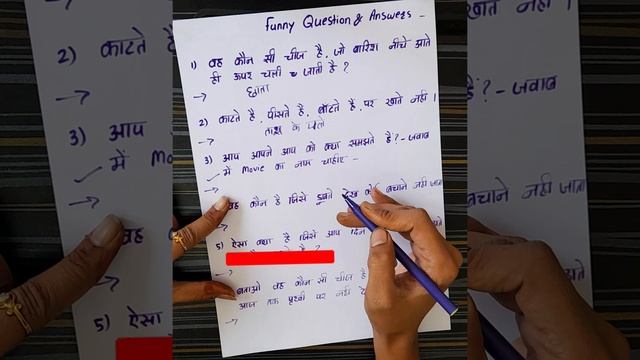 Funny Question & Answers -
1) वह कौन सी चीज है, जो बारिश नीचे आते
ही ऊपर चली जाती है?
→ छाता
2) काटते है, पीसते है, बाँटते है, पर खाते नहीं।
→ ताश के पत्ते
3) आप अपने आप को क्या समझते है? - जवाब
✓ में Movie का नाम चाहिए -
→
वह कौन है जिसे डुबते देख कोई बचाने नहीं जाता
→
5) ऐसा क्या है जिसे आप दिन
→
बताओ वह कौन सी चीज है
आज तक पृथ्वी पर नहीं
→